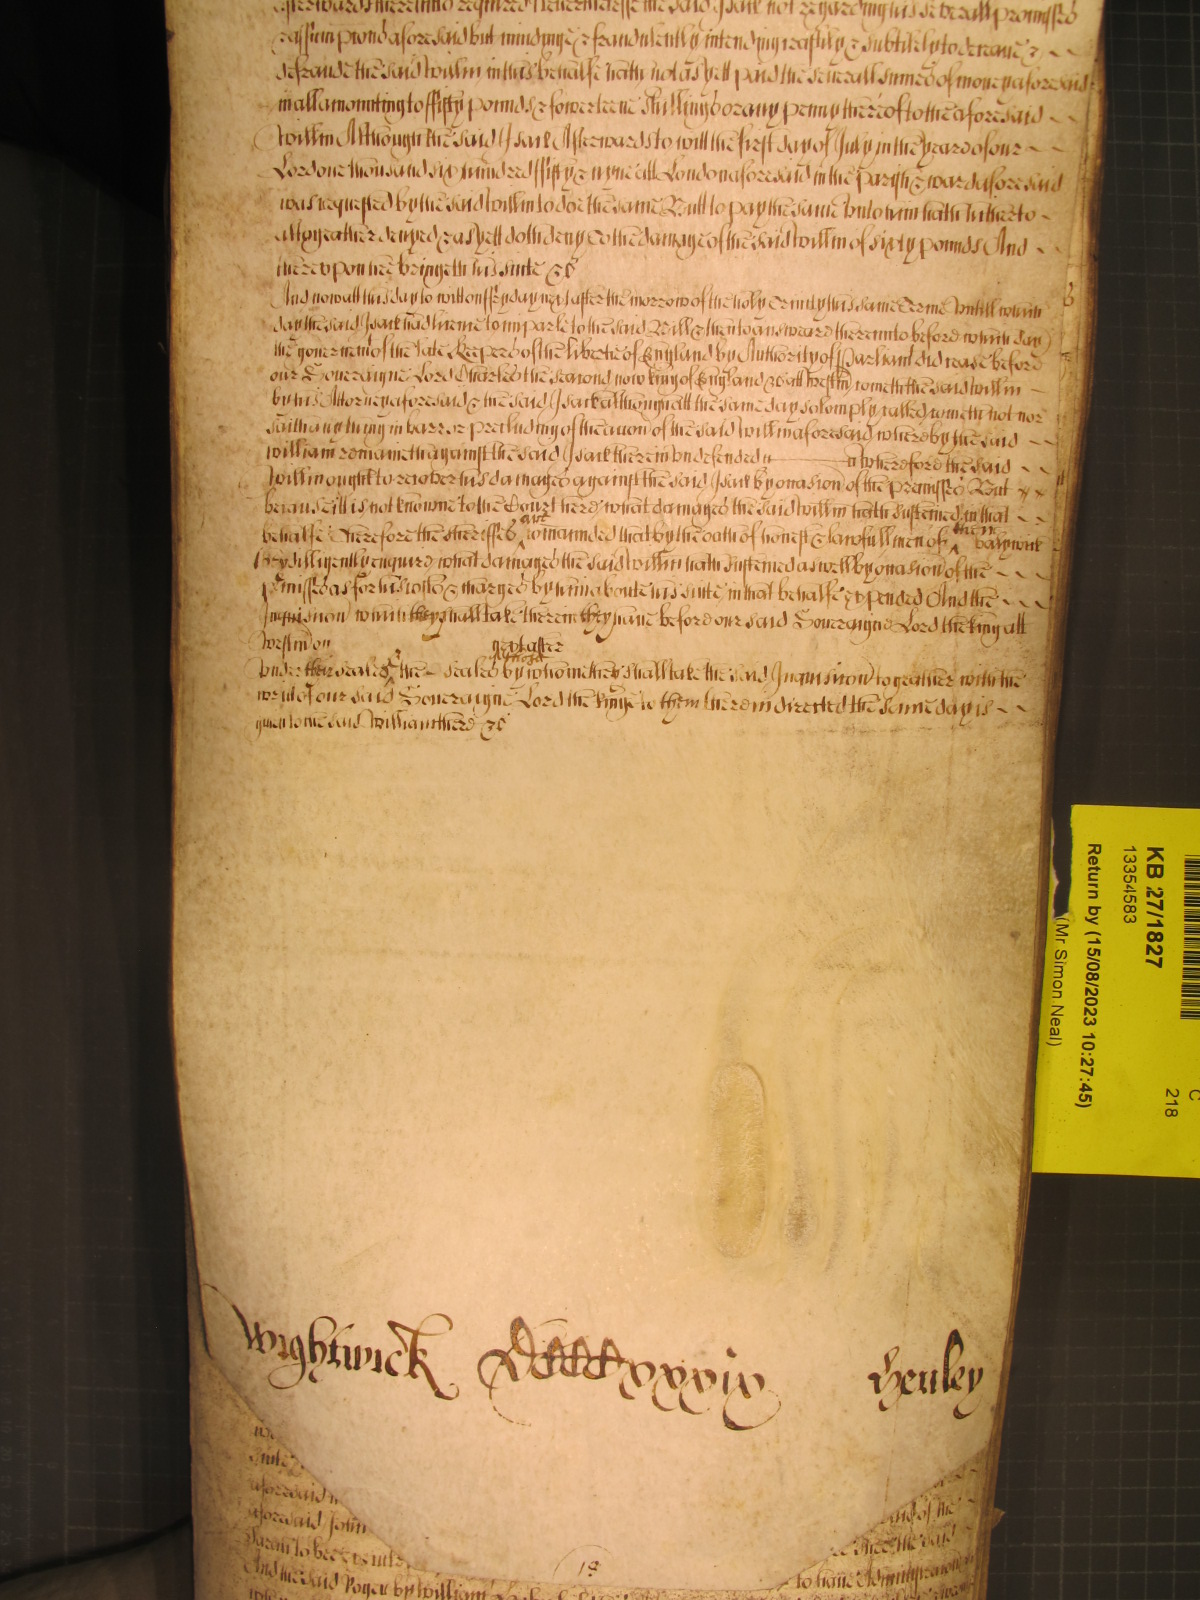 afterwards thereunto required Neverthelesse the said Isack not regarding his severall promisses
& assumptions aforesaid but mindinge & fraudulently intending craftily & subtilely to deceave &
defraude the said Willm in this behalfe hath not as yett paid the severall sumes of money aforesaid
in all amounting to fifty pounds & fowerteene shillings or any penny thereof to the aforesaid
Willm Although the said Isack Afterwards to witt the first day of July in the yeare of our
Lord one thousand six hundred fifty & nyne att London aforesaid in the parish & ward aforesaid
was requested by the said Willm to doe the same But to pay the same unto him hath hitherto
altogeather denyed & as yett doth deny To the damage of the said Willm of sixty pounds And
thereupon hee bringeth his suite &c
And now att this day to witt on fryday next after the morrow of the holy Trinity this same Terme Untill which
day the said Isack had licence to imparle to the said Bill & then to answeare thereunto before which day
the goverment of the late Keepers of the libertie of England by Authority of Parliamt did cease before
our Soveraigne Lord Charles the second now king of England &c att Westm cometh the said Willm
by his Attorney aforesaid & the said Isack although att the same day solemply called cometh not nor
saith any thing in barr or precluding of the accion of the said Willm aforesaid whereby the said
William remaineth against the said Isack therein undefended wherefore the said
Willm ought to recover his damages against the said Isack by occasion of the premisses But
because itt is not knowne to the Court here what damages the said Willm hath susteined in that
behalfe Therefore the sheriffes are comanded that by the oath of honest & lawfull men of their baylywick
they dilligently enquire what damages the said Willm hath susteined as well by occasion of the
pmisses as for his costs & charges by him about his suite in that behalfe expended And the
Inquisicion which they shall take therein they have before our said Soveraigne Lord the king att
Westm on next after
under their seales & the seales of those by whome they shall take the said Inquisicion togeather with the
writt of our said Soveraigne Lord the kinge to them therein directed the same day is
given to the said William there &c
Wightwick DCCCCxxxix Henley
aforesaid
aforesaid John
And the said Roger by William
to have
KB 27/1827
13354583
Return by (15/08/2023 10:27:45)
(Mr Simon Neal)
C
218